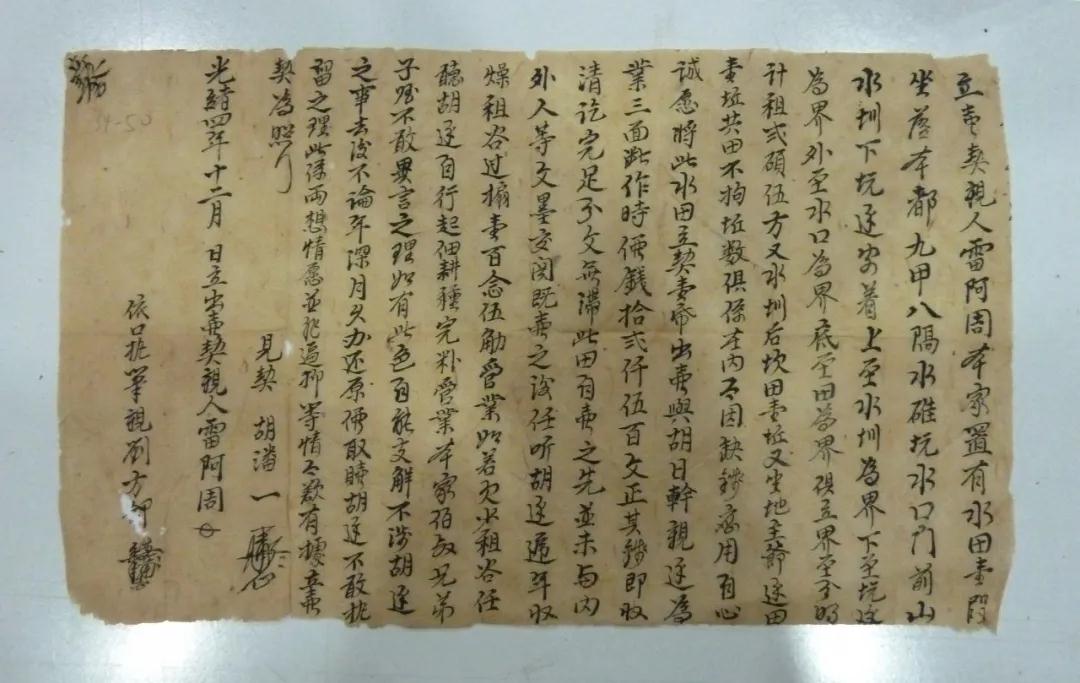 立賣契親人雷阿周本家置有水田壹段
坐落本都九甲八隅水碓坑水口門前山
水圳下坑安着上至水圳為界下至坑
為界外至水口為界底至田為界俱立界至分明
計租弍碩伍方又水圳后坎田壹坵又坐地主爺田
壹坵共田不拘坵数俱係在内今因缺錢應用自心
誠愿將此水田立契賣帝出賣與胡日幹親邊為
業三面断作時價錢拾弍仟伍百文正其錢即收
清訖完足分文無滞此田自賣之先並未与内
外人等文墨交関既賣之後任听胡邊遞年收
燥租谷过搧壹百念伍觔管業如若欠少租谷任
聽胡邊自行起佃耕種完粮管業本家伯叔兄弟
子侄不敢異言之理如有此色自能支解不涉胡邊
之事去後不論年深月久办还原價取贖胡邊不敢执
留之理此係両想情愿並非逼抑等情今欲有據立賣
契為照
光緒四年十二月 日立出賣契親人雷阿周
見契 胡 一
依口执筆親劉方